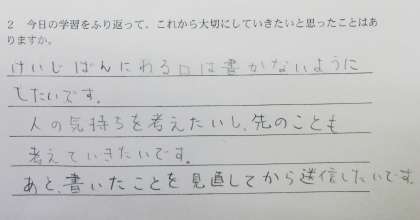 2 今日の学習をふり返って、これから大切にしていきたいと思ったことはあ
りますか。
けいじばんにわる口は書かないように
したいです。
人の気持ちを考えたいし、先のことも
考えていきたいです。
あと、書いたことを見直してから送信したいです